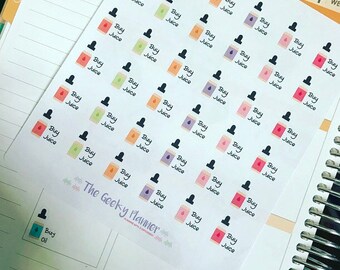 WE
Buy Juice Buy Juice Buy Juice Buy Juice Buy Juice
Buy Juice Buy Juice Buy Juice Buy Juice Buy Juice Buy Juice
Buy Juice Buy Juice Buy Juice Buy Juice Buy Juice Buy Juice
Buy Juice Buy Juice Buy Juice Buy Juice Buy Juice Buy Juice
Buy Juice Buy Juice Buy Juice Buy Juice Buy Juice Buy Juice
Buy Juice Buy Juice Buy Juice Buy Juice Buy Juice Buy Juice
The Geeky Planner
Buy
Oil